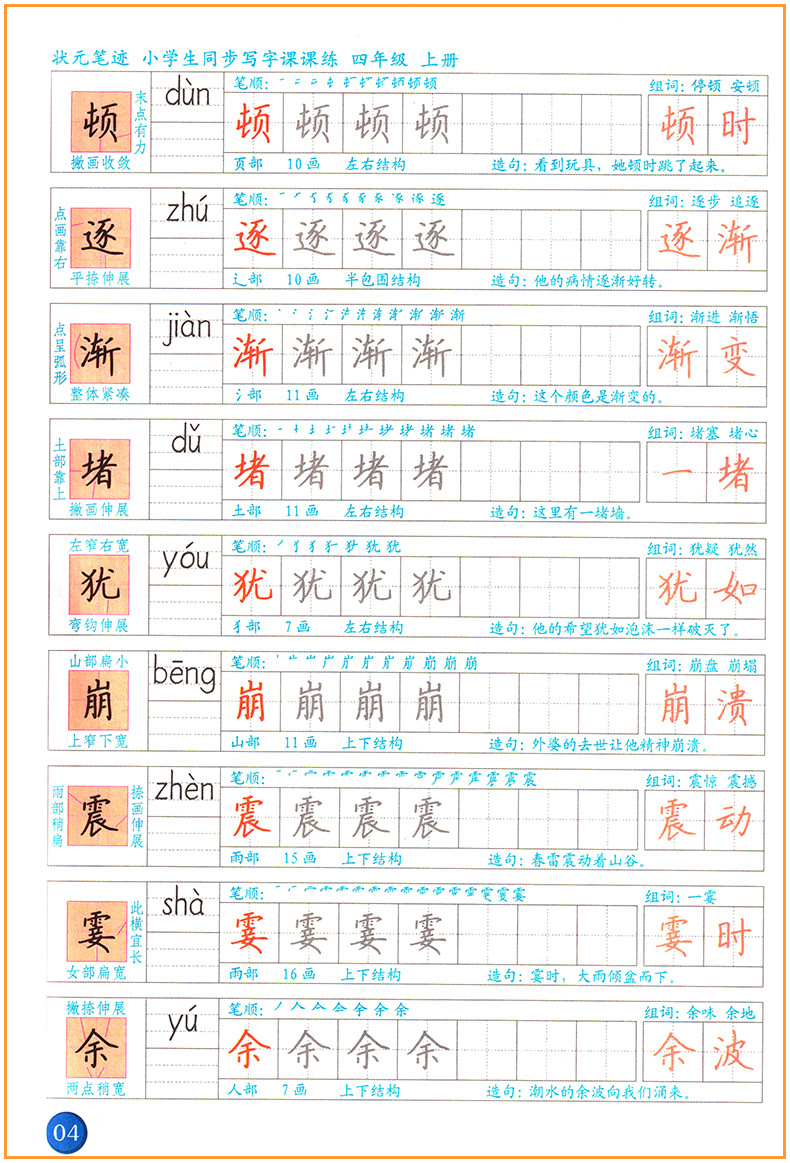 状元笔迹 小学生同步写字课课练 四年级 上册
顿 末点有力 撇画收敛
dùn
笔顺:
组词：停顿 安顿
顿 顿 顿 顿 顿 时
页部 10画 左右结构 造句：看到玩具，她顿时跳了起来。
点画靠右 逐 平捺伸展
zhú
笔顺:
组词：逐步 追逐
逐 逐 逐 逐 逐 渐
辶部 10画 半包围结构 造句：他的病情逐渐好转。
点呈弧形 渐 整体紧凑
jiàn
笔顺:
组词：渐进 渐悟
渐 渐 渐 渐 渐 变
氵部 11画 左右结构 造句：这个颜色是渐变的。
土部靠上 堵 撇画伸展
dǔ
笔顺:
组词：堵塞 堵心
堵 堵 堵 堵 一 堵
土部 11画 左右结构 造句：这里有一堵墙。
左窄右宽 犹 弯钩伸展
yóu
笔顺:
组词：犹疑 犹然
犹 犹 犹 犹 犹 如
犭部 7画 左右结构 造句：他的希望犹如泡沫一样破灭了。
山部扁小 崩 上窄下宽
bēng
笔顺:
组词：崩盘 崩塌
崩 崩 崩 崩 崩 溃
山部 11画 上下结构 造句：外婆的去世让他精神崩溃。
雨部稍扁 震 捺画伸展
zhèn
笔顺:
组词：震惊 震撼
震 震 震 震 震 动
雨部 15画 上下结构 造句：春雷震动着山谷。
霎 此横宜长 女部扁宽
shà
笔顺:
组词：一霎
霎 霎 霎 霎 霎 时
雨部 16画 上下结构 造句：霎时，大雨倾盆而下。
撇捺伸展 余 两点稍宽
yú
笔顺:
组词：余味 余地
余 余 余 余 余 波
人部 7画 上下结构 造句：潮水的余波向我们涌来。
04